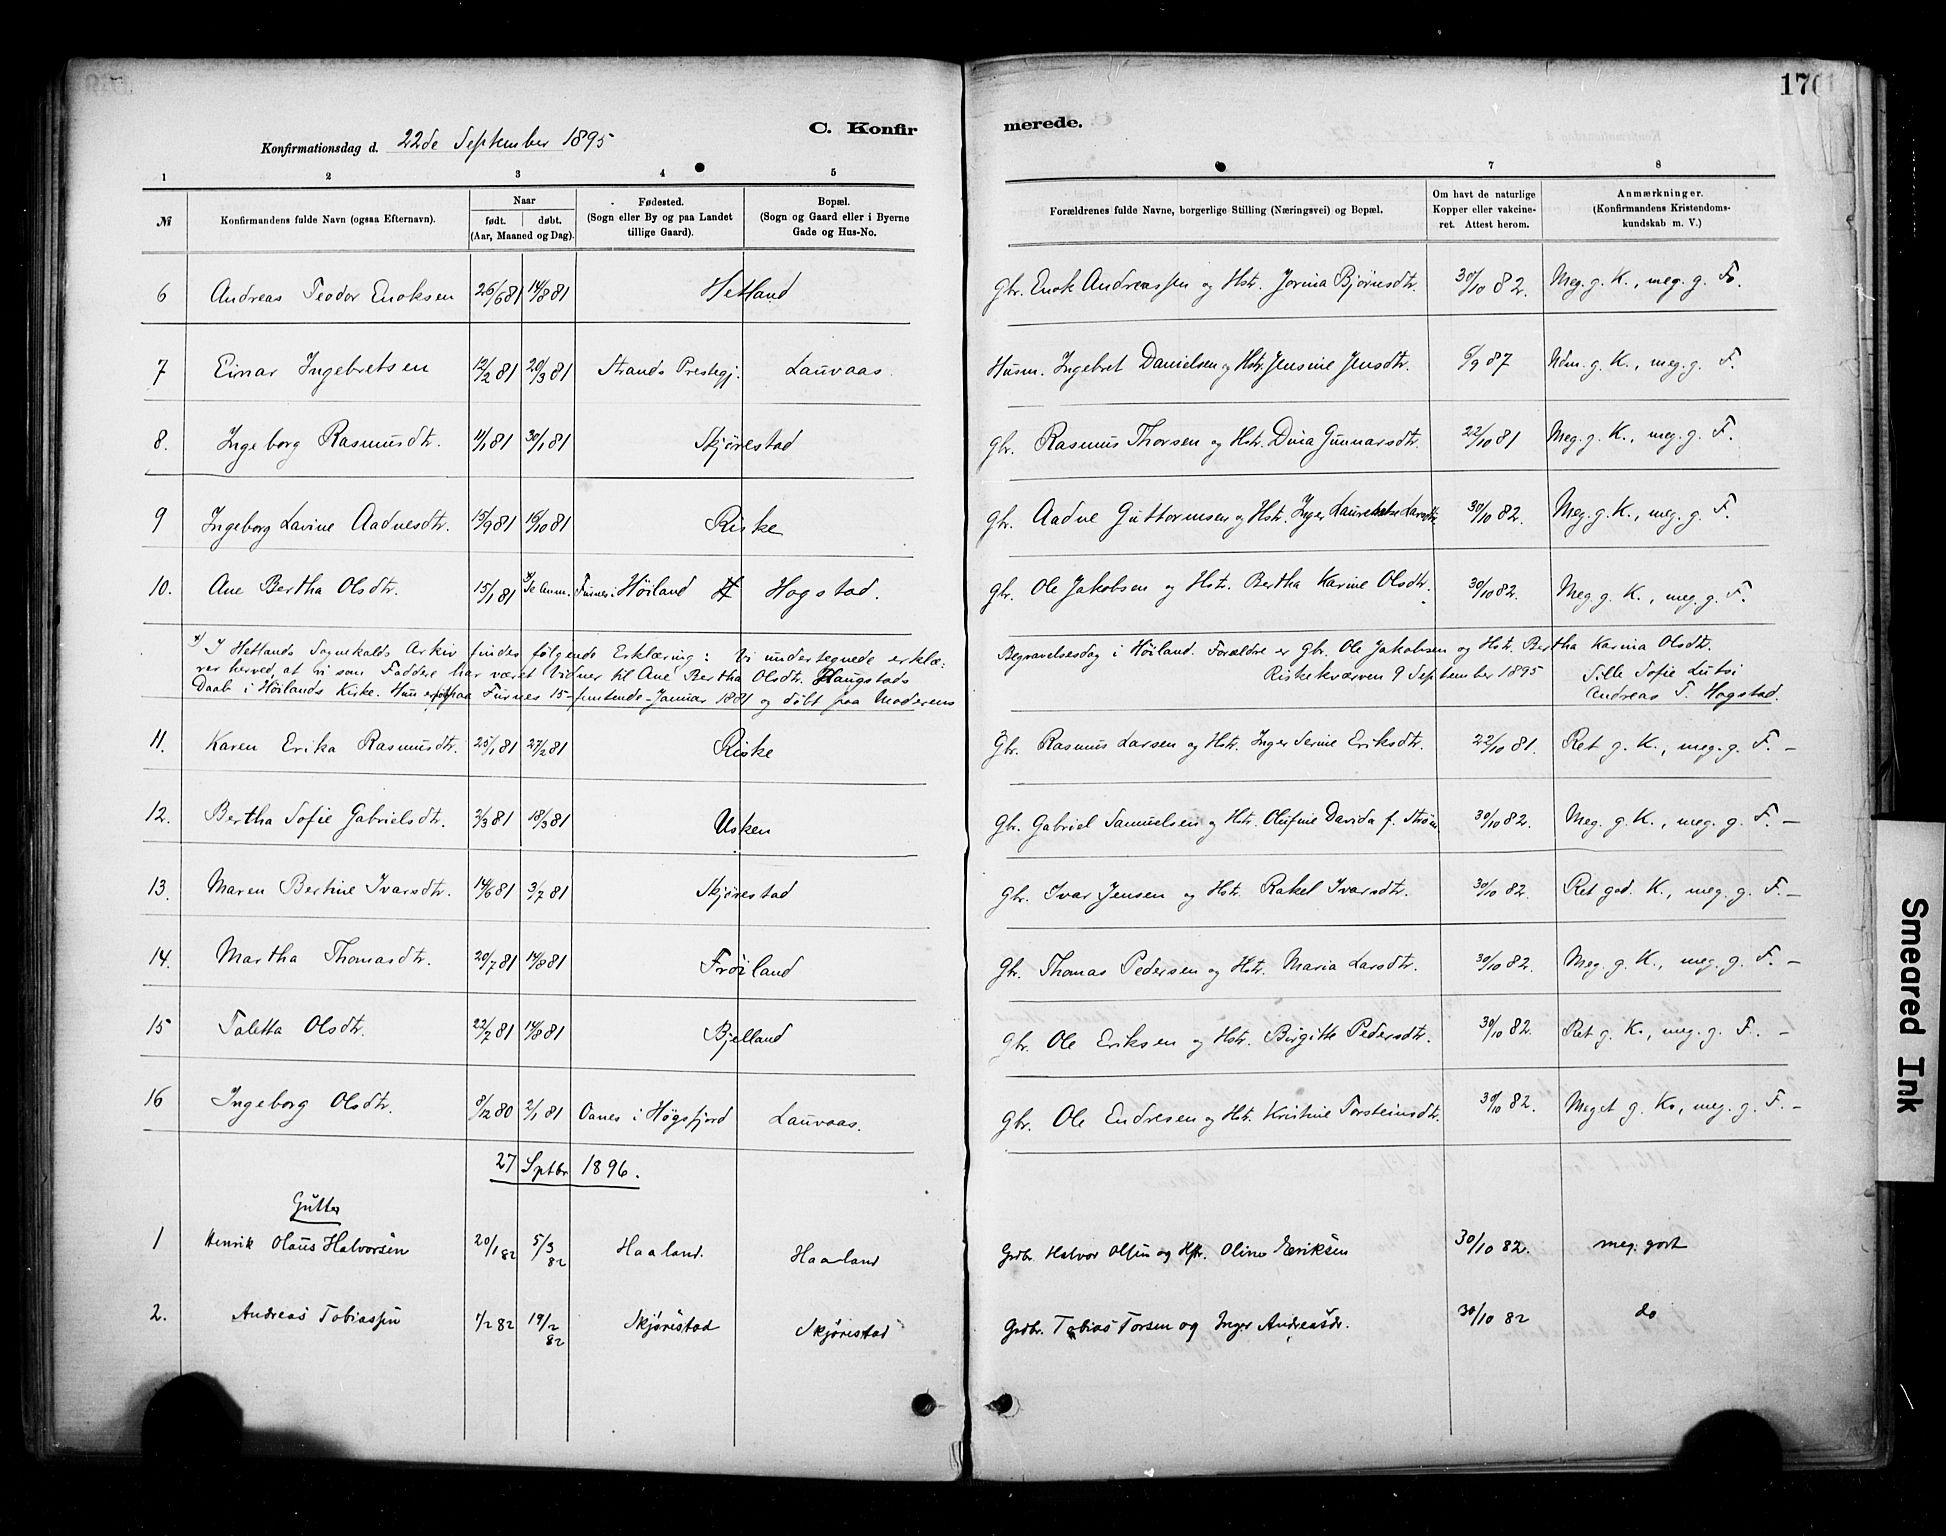 170
C. Konfirmerede.
Konfirmationsdag d. 22de September 1895
1 2 3 4 5 7 8
№ Konfirmandens fulde Navn (ogsaa Efternavn). Naar født. døbt. (Aar, Maaned og Dag). Fødested. (Sogn eller By og paa Landet tillige Gaard). Bopæl. (Sogn og Gaard eller i Byerne Gade og Hus-No. Forældrenes fulde Navne, borgerlige Stilling (Næringsvei) og Bopæl. Om havt de naturlige Kopper eller vakcineret. Attest herom. Anmærkninger. (Konfirmandens Kristendomskundskab m. V.)
6 Andreas Teodor Enoksen 26/6 81 14/8 81 Hetland Gbr. Enok Andreassen og Hstr. Jorina Bjørnsdtr. 30/10 82. Meg. g. K., meg. g. F.
7 Einar Ingebretsen 12/2 81 20/3 81 Strands Prestegj. Lauvaas. Husm. Ingebret Danielsen og Hstr. Jensine Jensdtr. 6/9 87 K., meg. g. F.
8. Ingeborg Rasmusdtr. 4/1 81 30/1 81 Skjørestad Gbr. Rasmus Thorsen og Hstr. Dina Gunnarsdtr. 22/10 81 Meg. g. K., meg. g. F.
9 Ingeborg Lavine Aadnesdtr. 15/9 81 16/10 81 Riske Gbr. Aadne Guttormsen og Hstr. Inger 30/10 82. Meg. g. K., meg. g. F.
10. Ane Bertha Olsdtr. 15/1 81 Se Anm. Furnes i Høiland Hogstad. Gbr. Ole Jakobsen og Hstr. Bertha Karine Olsdtr. 30/10 82. Meg. g. K., meg. g. F.
I Hetlands Sognekalds Arkiv findes følgende Erklæring: Vi undertegnede erklæ-
rer herved, at vi som Faddere har været Vidner til Ane Bertha Olsdtr. Haugstads
Daab i Høilands Kirke. Hun er født paa Furnes 15-femtende-Januar 1881 og døbt paa Moderens
Begravelsesdag i Høiland. Forældre er Gbr. Ole Jakobsen og Hstr. Bertha Karina Olsdtr.
Riskekværven 9 September 1895 Sille Sofie Lutsi
Andreas T. Hogstad.
11. Karen Erika Rasmusdtr. 25/1 81 27/2 81 Riske Gbr. Rasmus Larsen og Hstr. Inger Serine Eriksdtr. 22/10 81. Ret g. K., meg. g. F. –
12. Bertha Sofie Gabrielsdtr. 3/3 81 18/3 81 Usken Gbr. Gabriel Samuelsen og Hstr. Olufine Davida f. Strøm 30/10 82. Meg. g. K., meg. g. F. –
13. Maren Bertine Ivarsdtr. 14/6 81 3/7 81 Skjørestad Gbr. Ivar Jensen og Hstr. Rakel Ivarsdtr. 30/10 82. Ret god. K., meg. g. F. –
14. Martha Thomasdtr. 20/7 81 14/8 81 Frøiland Gbr. Thomas Pedersen og Hstr. Maria Larsdtr. 30/10 82. Meg. g. K., meg. g. F. –
15 Taletta Olsdtr. 22/7 81 14/8 81 Bjelland Gbr. Ole Eriksen og Hstr. Birgitte Pedersdtr. 30/10 82. Ret g. K., meg. g. F. –
16 Ingeborg Olsdtr. 8/12 80 2/1 81 Oanes i Høgsfjord Lauvaas. Gbr. Ole Endresen og Hstr. Kristine Torsteinsdtr. 30/10 82. Meget g. K., meg. g. F. –
27 Sptbr 1896.
Gutter
1 Henrik Olaus Halvorsen 20/1 82 5/3 82 Haaland. Haaland Grdbr. Halvor Olsen og Hstr. Oline Eriksen 30/10 82. meg. godt
2. Andreas Tobiassen 1/2 82 19/2 82 Skjørestad Skjørestad Grdbr. Tobias Torsen og Inger Andreasdr. 30/10 82 do
Smeared Ink